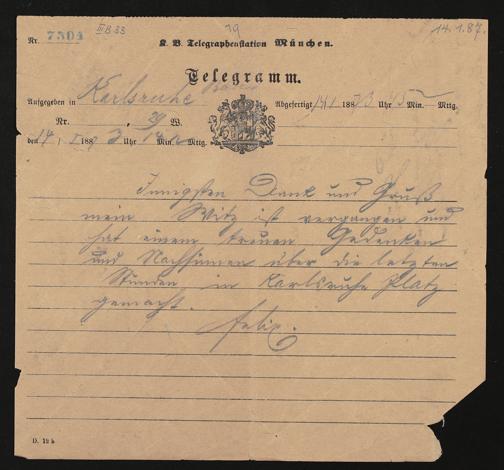 III B 33
19
14.1.87.
Nr. 7504
K. B. Telegraphenstation München.
Telegramm.
Aufgegeben in Karlsruhe Abgefertigt 14/1 1887 3 Uhr 45 Min. Mttg.
Nr. 29 W.
den 14 / I 1887 3 Uhr Min. Mttg.
Innigsten Dank und Gruß
mein Witz ist vergangen und
hat einem treuen Gedenken
und Nachsinnen über die letzten
Stunden in Karlsruhe Platz
gemacht.
Felix.
D. 12 b